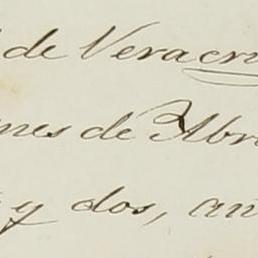 de Veracru
nes de Abr
y dos, an